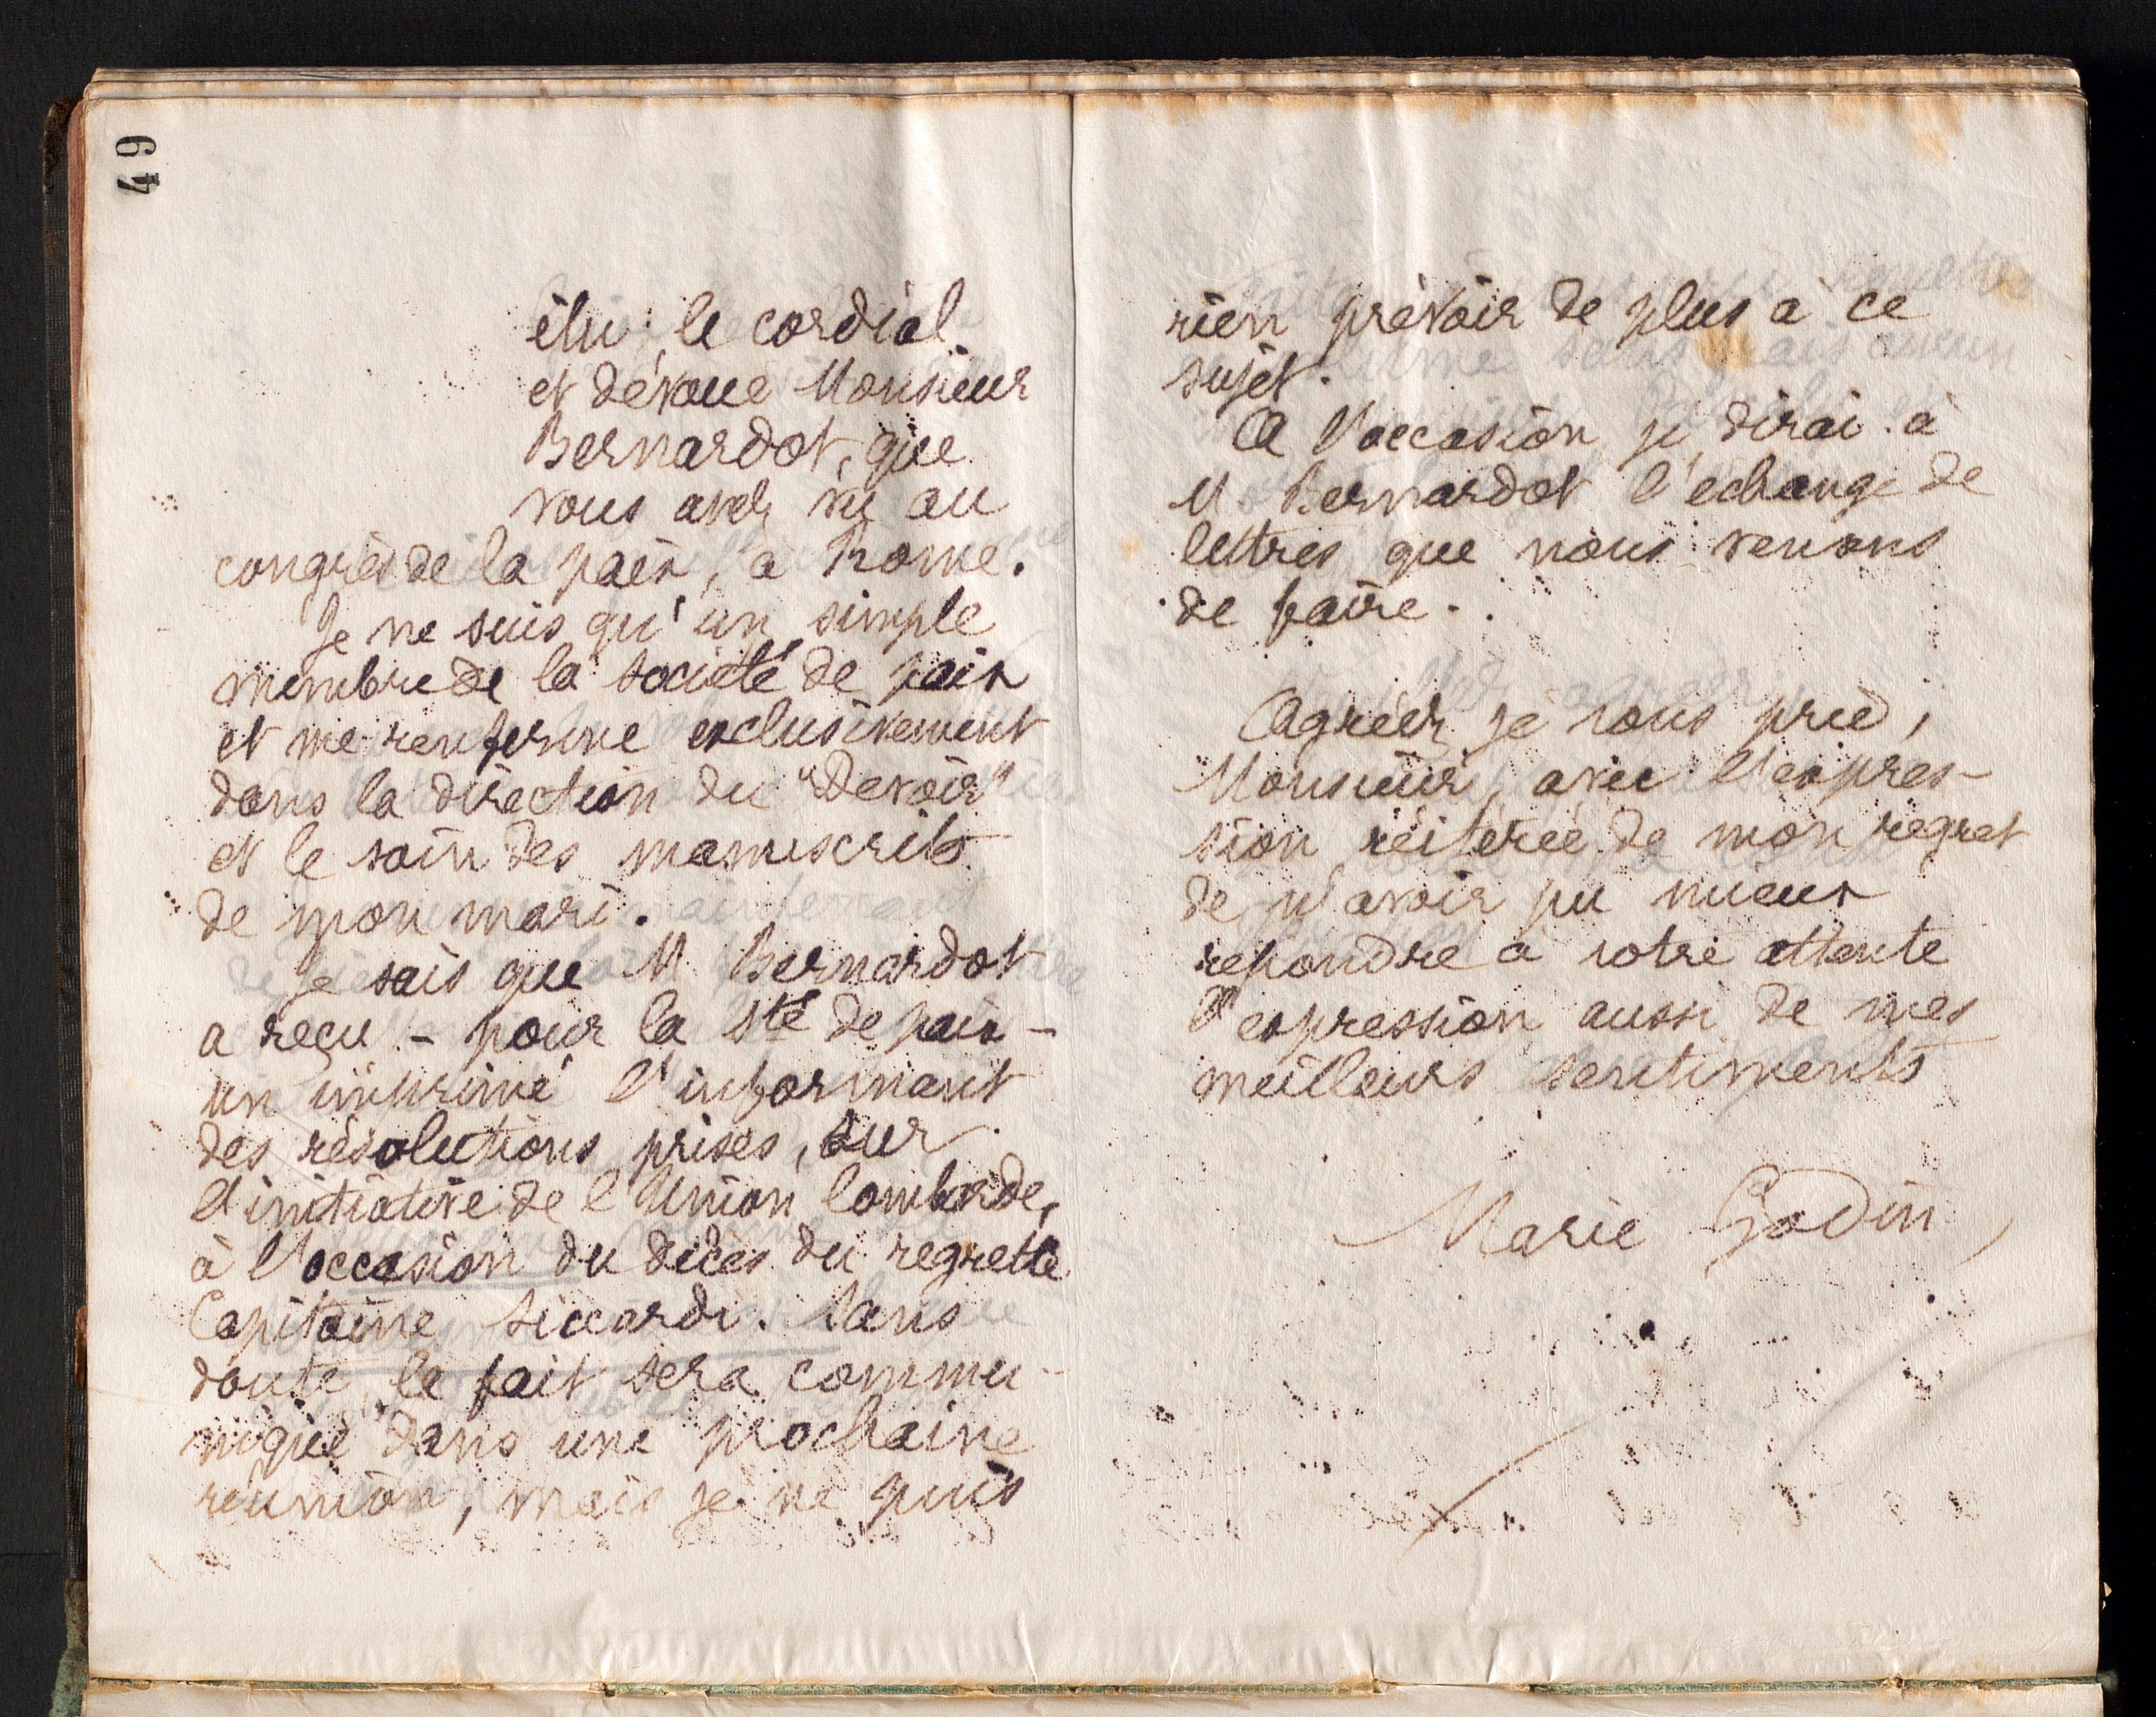 49
élu ; le cordial
et dévoué Monsieur
Bernardot, que
vous avez vu au
congrès de la paix, à Rome.
Je ne suis qu'un simple
membre de la société de paix
et me renferme exclusivement
dans la direction du "Devoir"
et le soin des manuscrits
de mon mari.
Je sais que M. Bernardot
a reçu - pour la Sté de paix -
un imprimé l'informant
des résolutions prises, sur
l'initiative de l'Union lombarde,
à l'occasion du décès du regretté
Capitaine Siccardi. Sans
doute, le fait sera commu-
niqué dans une prochaine
réunion, mais je ne puis
rien prévoir de plus à ce
sujet.
A l'occasion je dirai à
M. Bernardot l'échange de
lettres que nous venons
de faire.
Agréez je vous prie,
Monsieur, avec l'expres-
sion réitérée de mon regret
de n'avoir pu mieux
répondre à votre attente
l'expression aussi de mes
meilleurs sentiments
Marie Godin